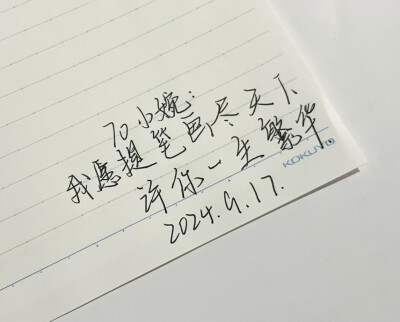 To 小婉：
我愿提笔画尽天下
许你一生繁华
KOKUYO
2024.9.17.